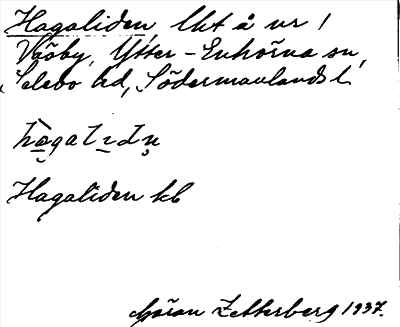 Hagaliden, lht å nr 1
Väsby, Ytter-Enhörna sn,
Selebo hd, Södermanlands l.
hàgalıdn̥
Hagaliden kb
Göran Zetterberg 1937.